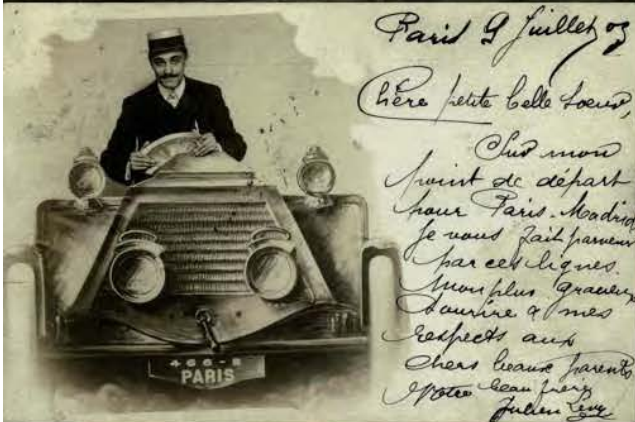 Paris 9 Juillet 03
Chère petite belle soeur,
Sur mon
point de départ
pour Paris-Madrid
Je vous fait parvenir
par ces lignes
mon plus gracieux
sourire & mes
respects aux
chers beaux parents
Votre beau frère
Julien Levy
466-8
PARIS